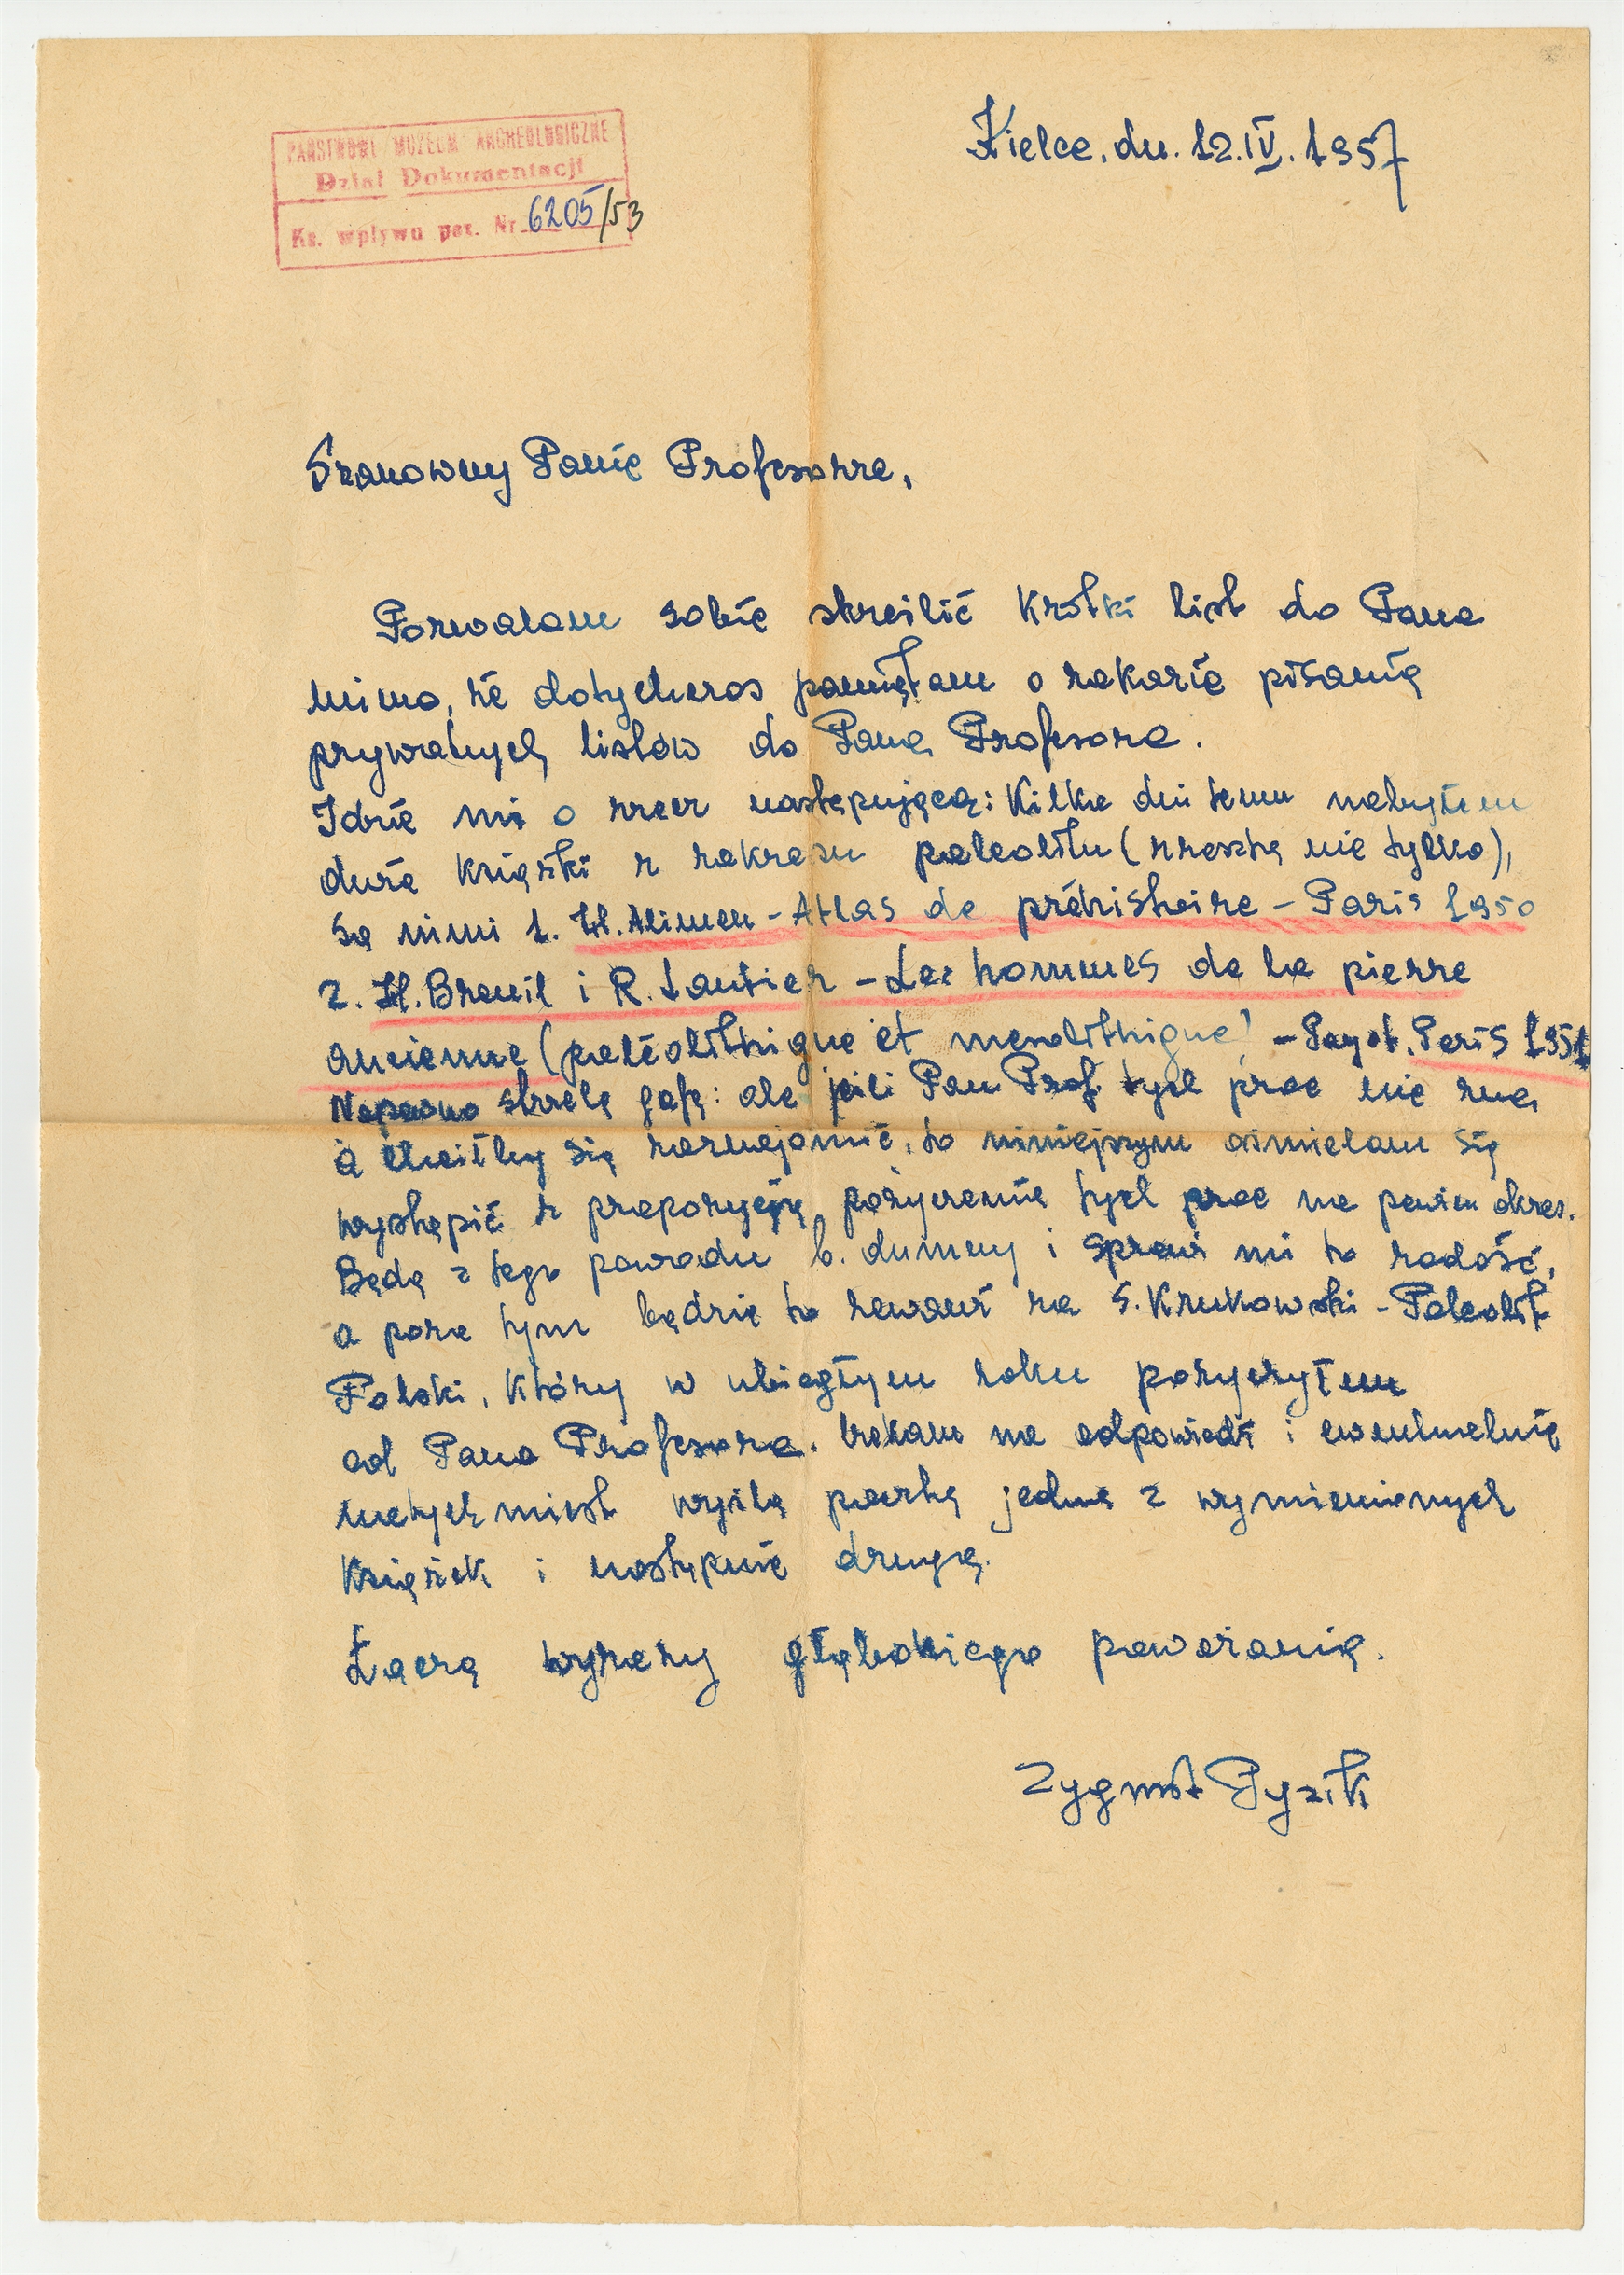 PAŃSTWOWE MUZEUM ARCHEOLOGICZNE
Dział Dokumentacji
Ks. wpływu poz. Nr 6205/53
Kielce, dn. 12.IV.1957
Szanowny Panie Profesorze,
Pozwalam sobie skreślić krótki list do Pana
mimo, że dotychczas pamiętam o zakazie pisania
prywatnych listów do Pana Profesora.
Idzie mi o rzecz następującą: Kilka dni temu nabyłem
dwie książki z zakresu paleolitu (zresztą nie tylko),
Są nimi 1. H. Alimen - Atlas de préhistoire - Paris 1950
2. H. Breuil i R. Lantier - Les hommes de la pierre
ancienne (paléolithique et mesolithique) - Payot. Paris 1951
Napewno strzelę gafę: ale jeśli Pan Prof. tych prac nie zna
a chciałby się zaznajomić, to niniejszym ośmielam się
wystąpić z propozycją pożyczenia tych prac na pewien okres.
Będę z tego powodu b. dumny i sprawi mi to radość,
a poza tym będzie to rewanż za S. Krukowski - Paleolit
Polski, który w ubiegłym roku pożyczyłem
od Pana Profesora. Czekam na odpowiedź i ewentualnie
natychmiast wyślę pocztą jedną z wymienionych
książek i następnie drugą.
Łączę wyrazy głębokiego poważania.
Zygmnt Pyzik